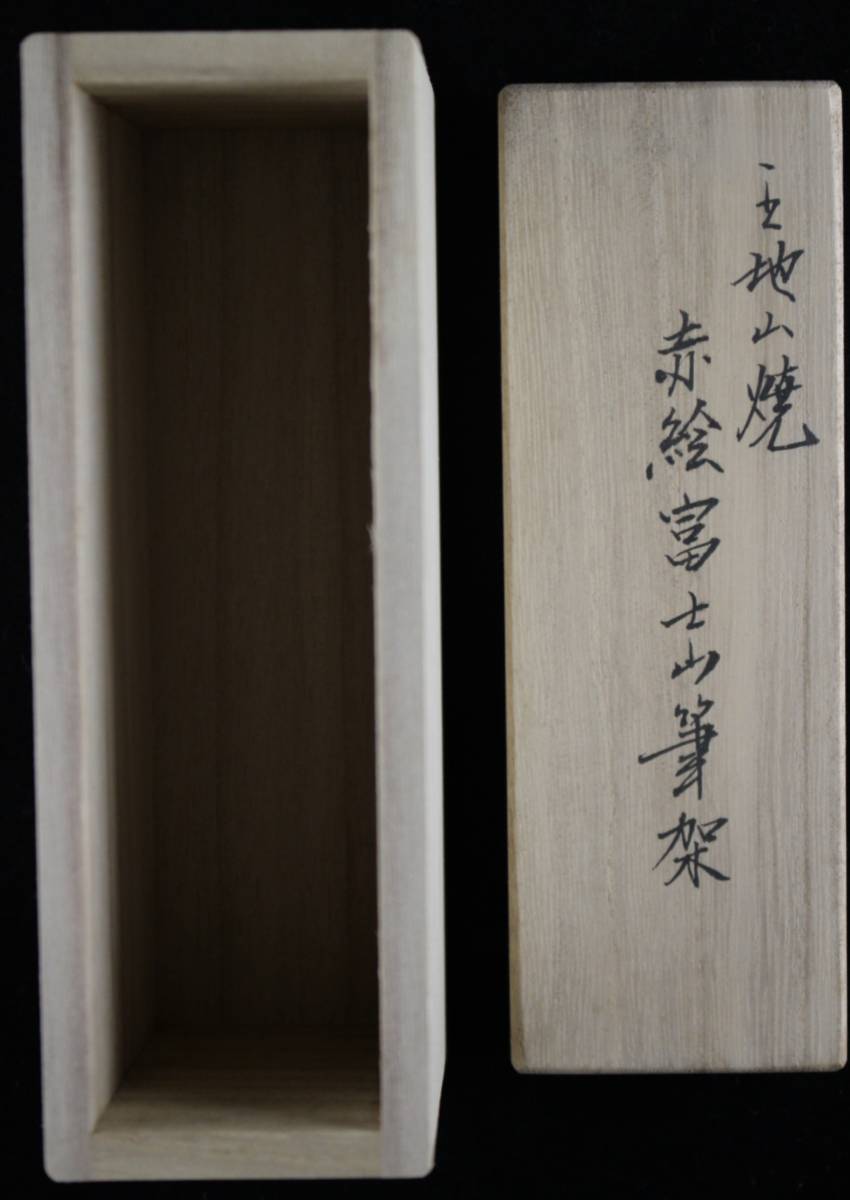 王地山焼
赤絵富士山筆架